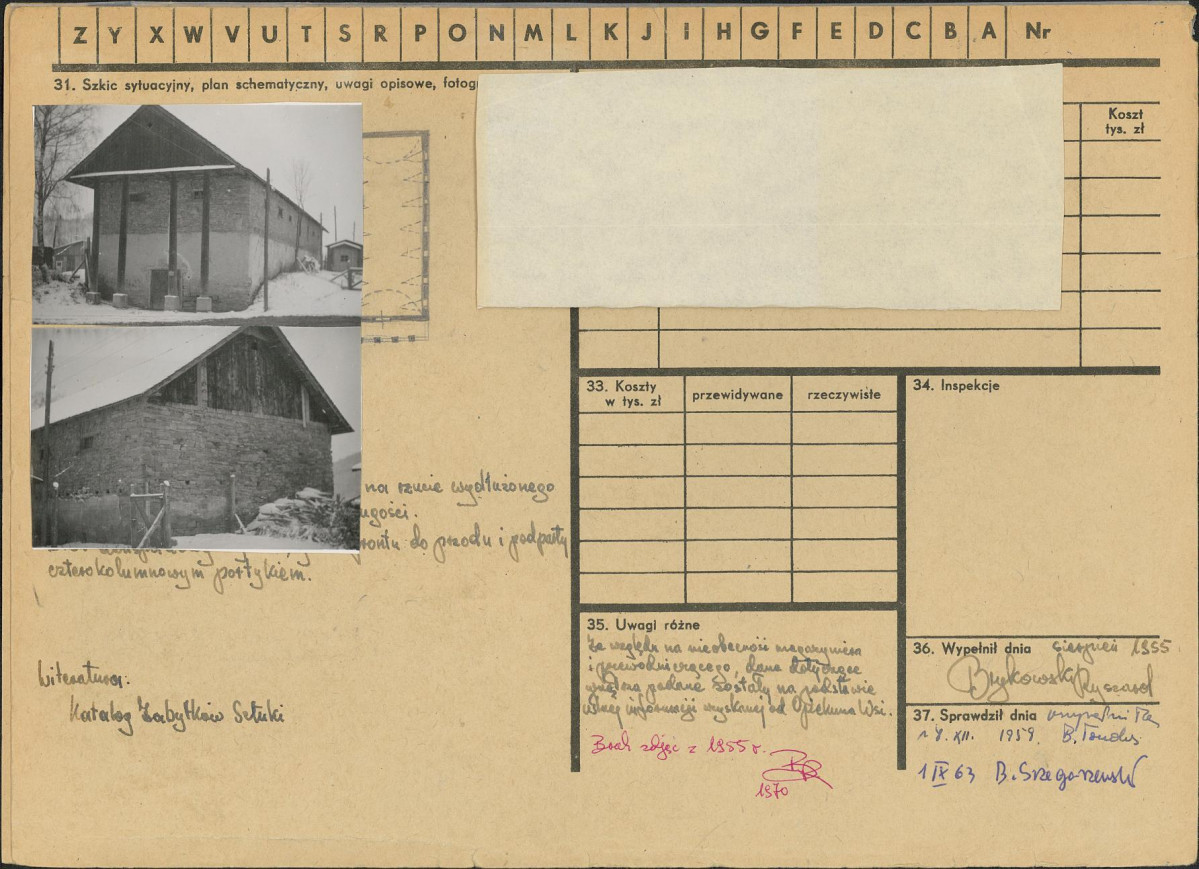 Z Y X W V U T S R P O N M L K J I H G F E D C B A Nr
31. Szkic sytuacyjny, plan schematyczny, uwagi opisowe, fotog
Koszt
tys. zł
na rzucie wydłużonego
ugości.
frontu do przodu i podparty
czterokolumnowym portykiem.
Literatura:
Katalog Zabytków Sztuki
33. Koszty
w tys. zł
przewidywane
rzeczywiste
34. Inspekcje
35. Uwagi różne
Ze względu na nieobecność magazyniera
i przewodniczącego, dane dotyczące
wnętrza podane zostały na podstawie
ustnej informacji uzyskanej od Opiekuna Wsi.
Brak zdjęć z 1955 r.
1970
36. Wypełnił dnia sierpień 1955
Brykowski Ryszard
37. Sprawdził dnia
XII. 1959. B.
1 IX 63 B.